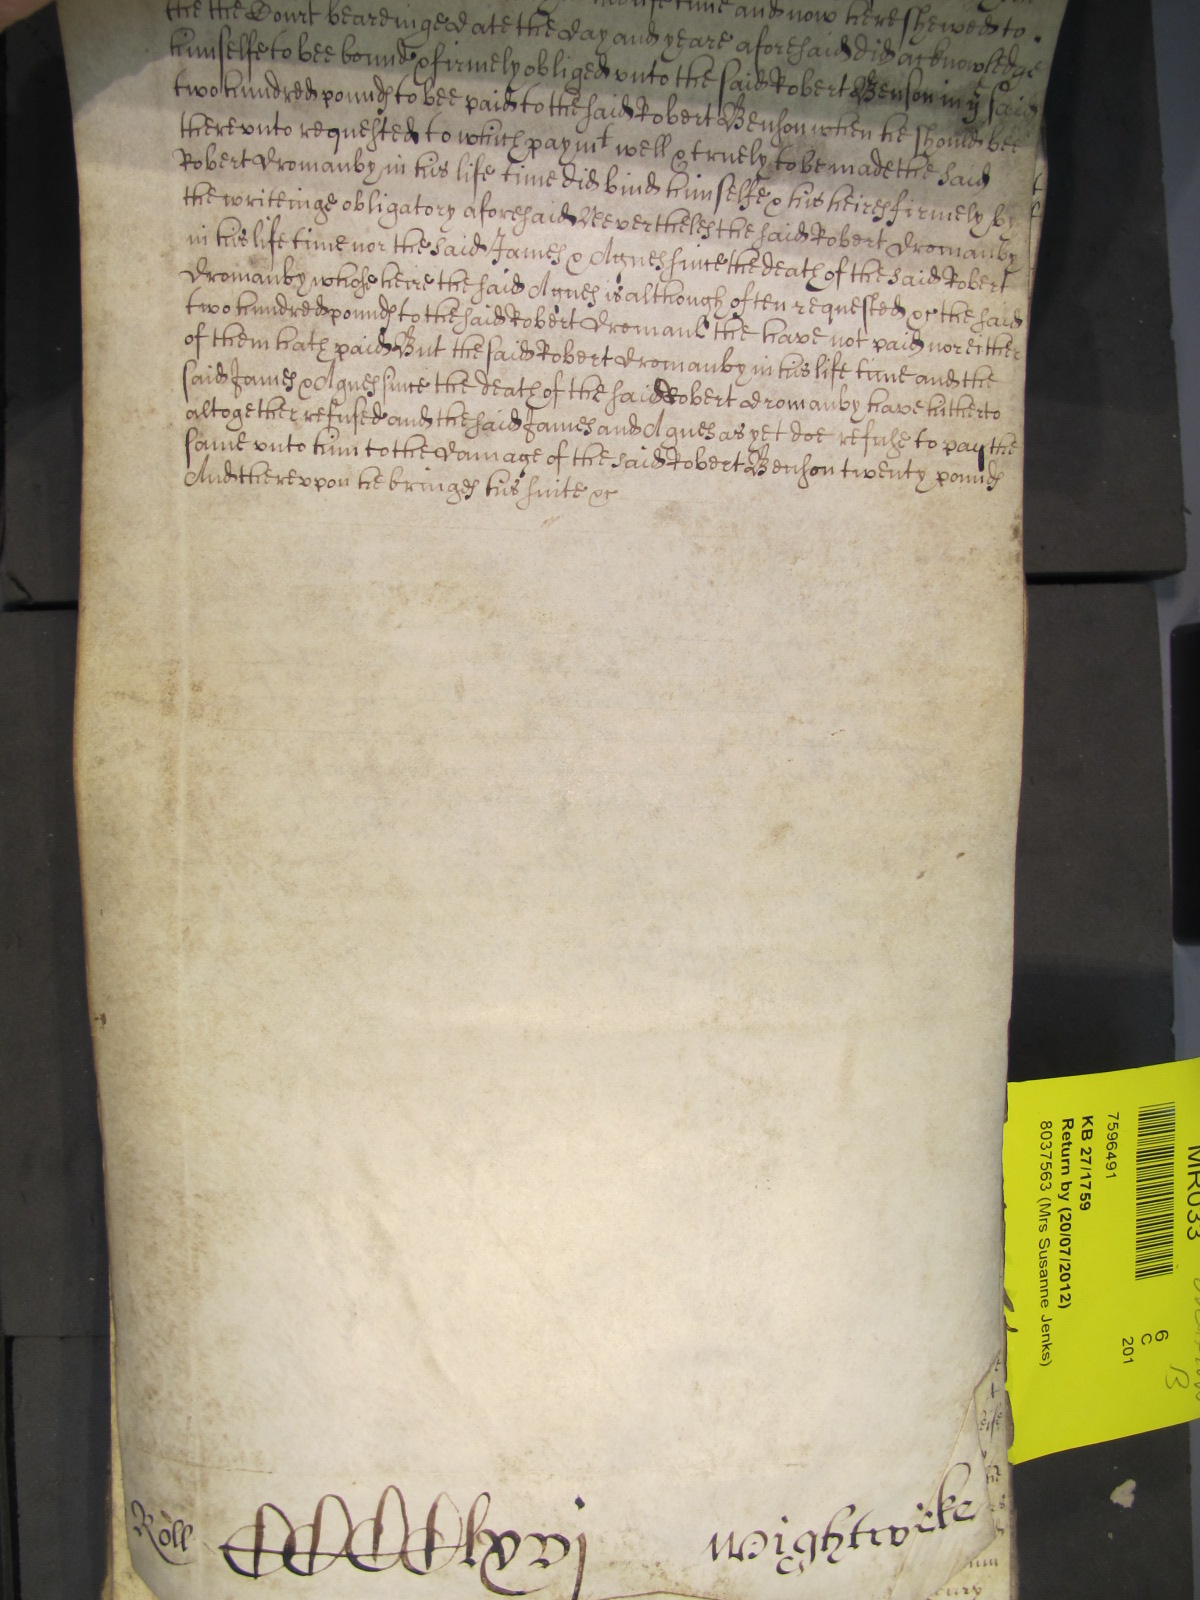 life time and now here shewed to
the the Court beardinge date the day and yeare aforesaid did acknowledge
himselfe to bee bound & firmely obliged vnto the said Robert Benson in ye said
two hundred pounds to bee paid to the said Robert Benson when he should bee
therevnto requested to which paymt well & truely to be made the said
Robert Dromanby in his life time did bind himselfe & his heires firmely by
the writeinge obligatory aforesaid Neevertheles the said Robert Dromanby
in his life time nor the said James & Agnes since the death of the said Robert
Dromanby whose heire the said Agnes is although often requested &c the said
two hundred pounds to the said Robert Dromanb the have not paid nor either
of them hath paid But the said Robert Dromanby in his life time and the
said James & Agnes since the death of the said Robert Dromanby have hitherto
altogether refused and the said James and Agnes as yet doe refuse to pay the
same vnto him to the damage of the said Robert Benson twenty pounds
And therevpon he bringes his suite &c
Roll CCCClxvj Wightwike
MR033
7596491
KB 27/1759
Return by (20/07/2012)
8037563 (Mrs Susanne Jenks)
6
C
201